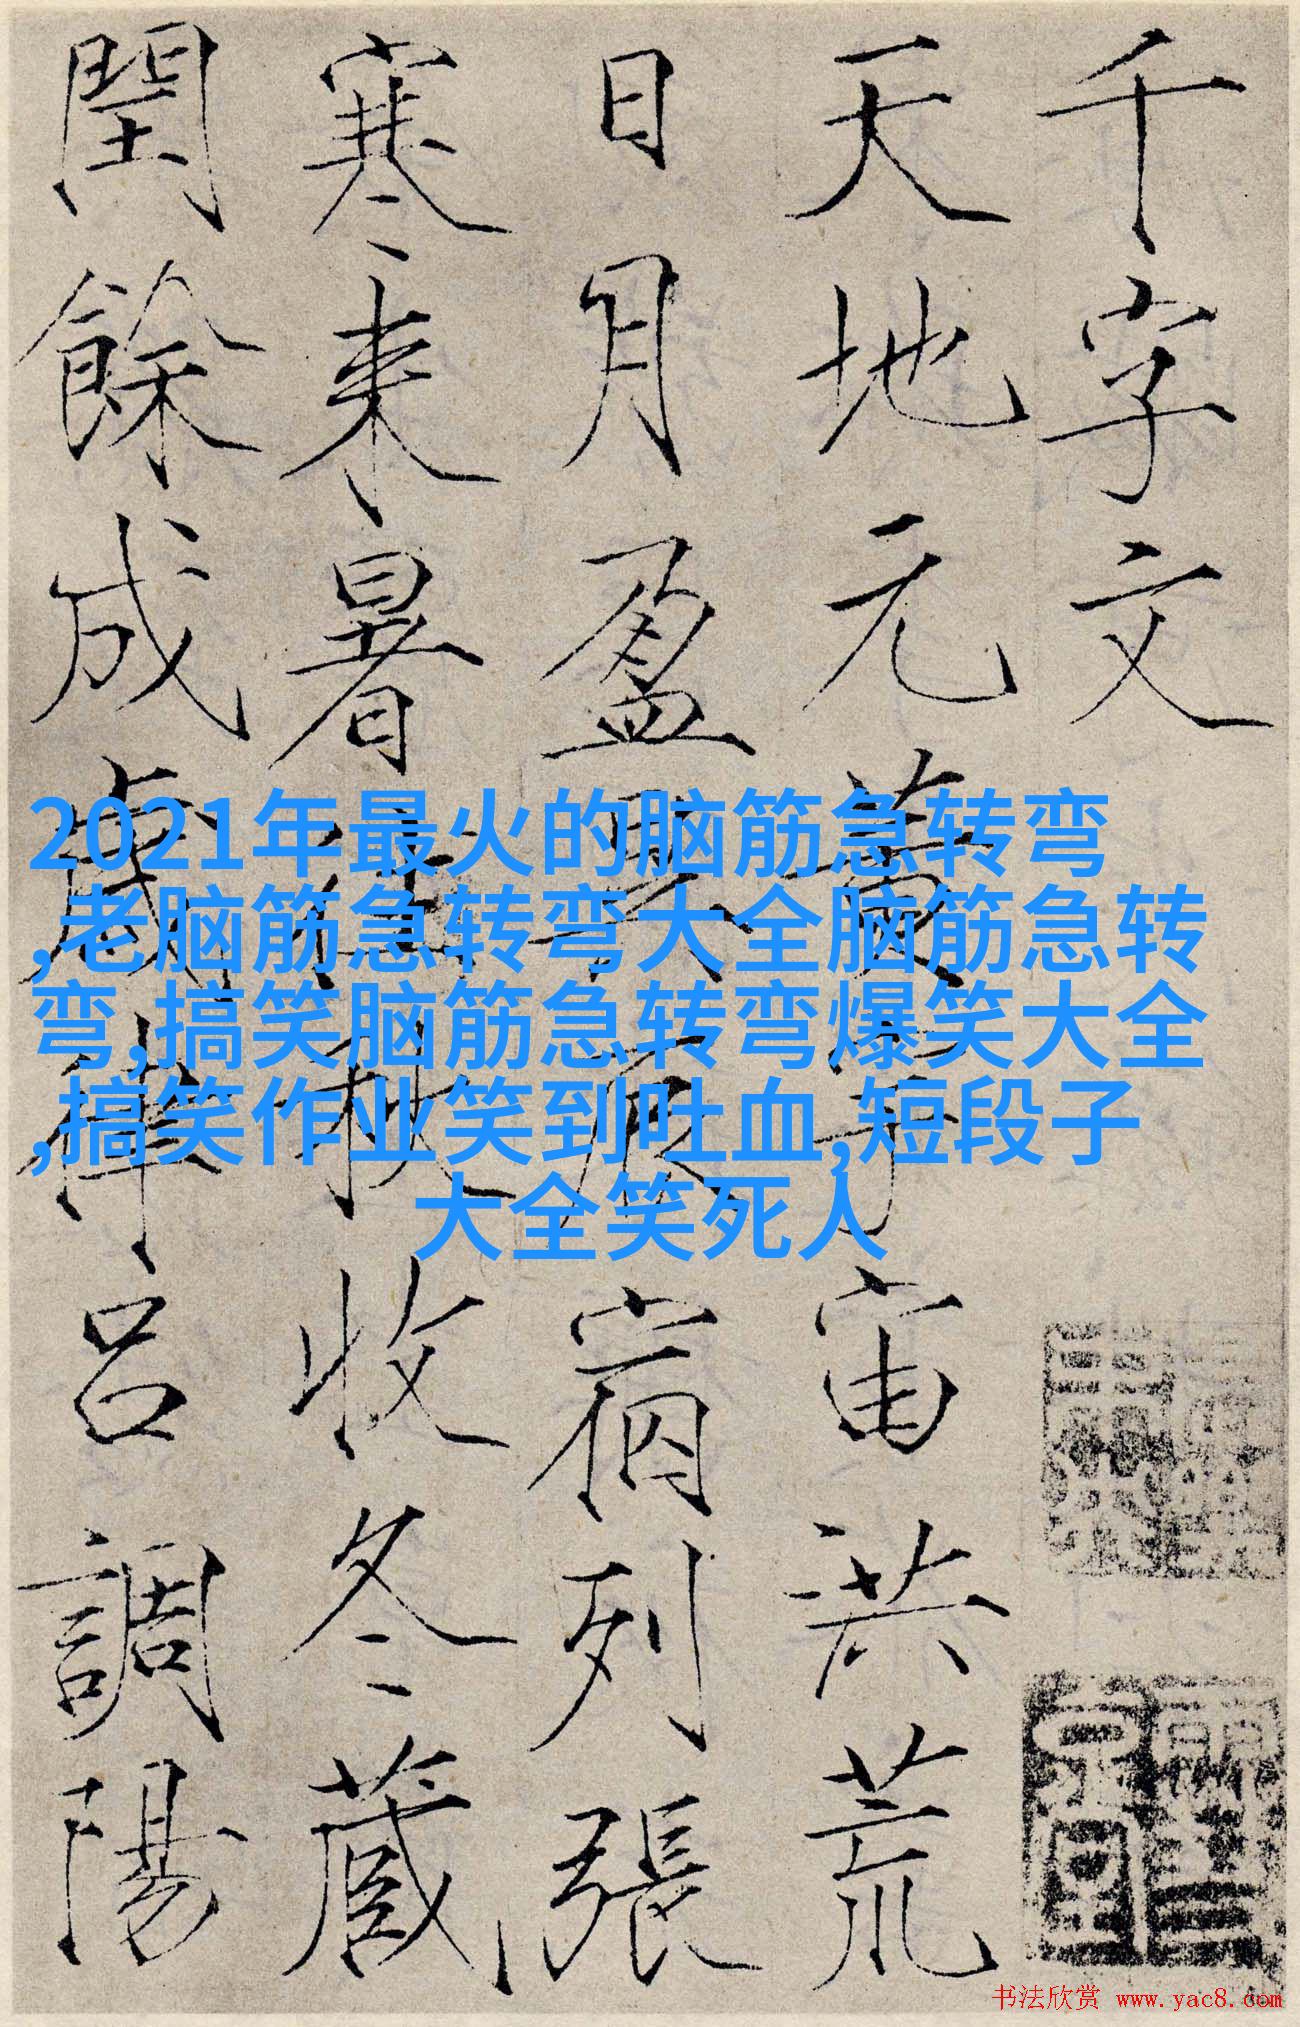 千字文
天地元黄宇宙洪荒
日月盈昃辰宿列張
寒来暑往秋收冬蔵
閏餘成歳律吕調陽
2021年最火的脑筋急转弯
,老脑筋急转弯大全脑筋急转
弯,搞笑脑筋急转弯爆笑大全
,搞笑作业笑到吐血,短段子
大全笑死人
书法欣赏 www.yac8.com